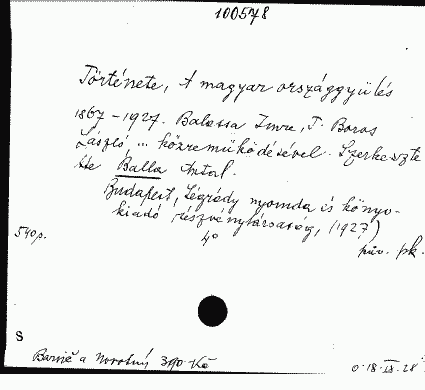 100578
Története, A magyar országgyűlés
1867-1927. Balassa Imre, T. Boros
László ... közreműködésével. Szerkeszte
tte Balla Antal.
Budapest, Légrády nyomda és könyv-
kiadó részvénytársaság, (1927)
540p.
4°
pův. pk.
S
Barvič a Novotný 390 Kč
0.18.IX.28